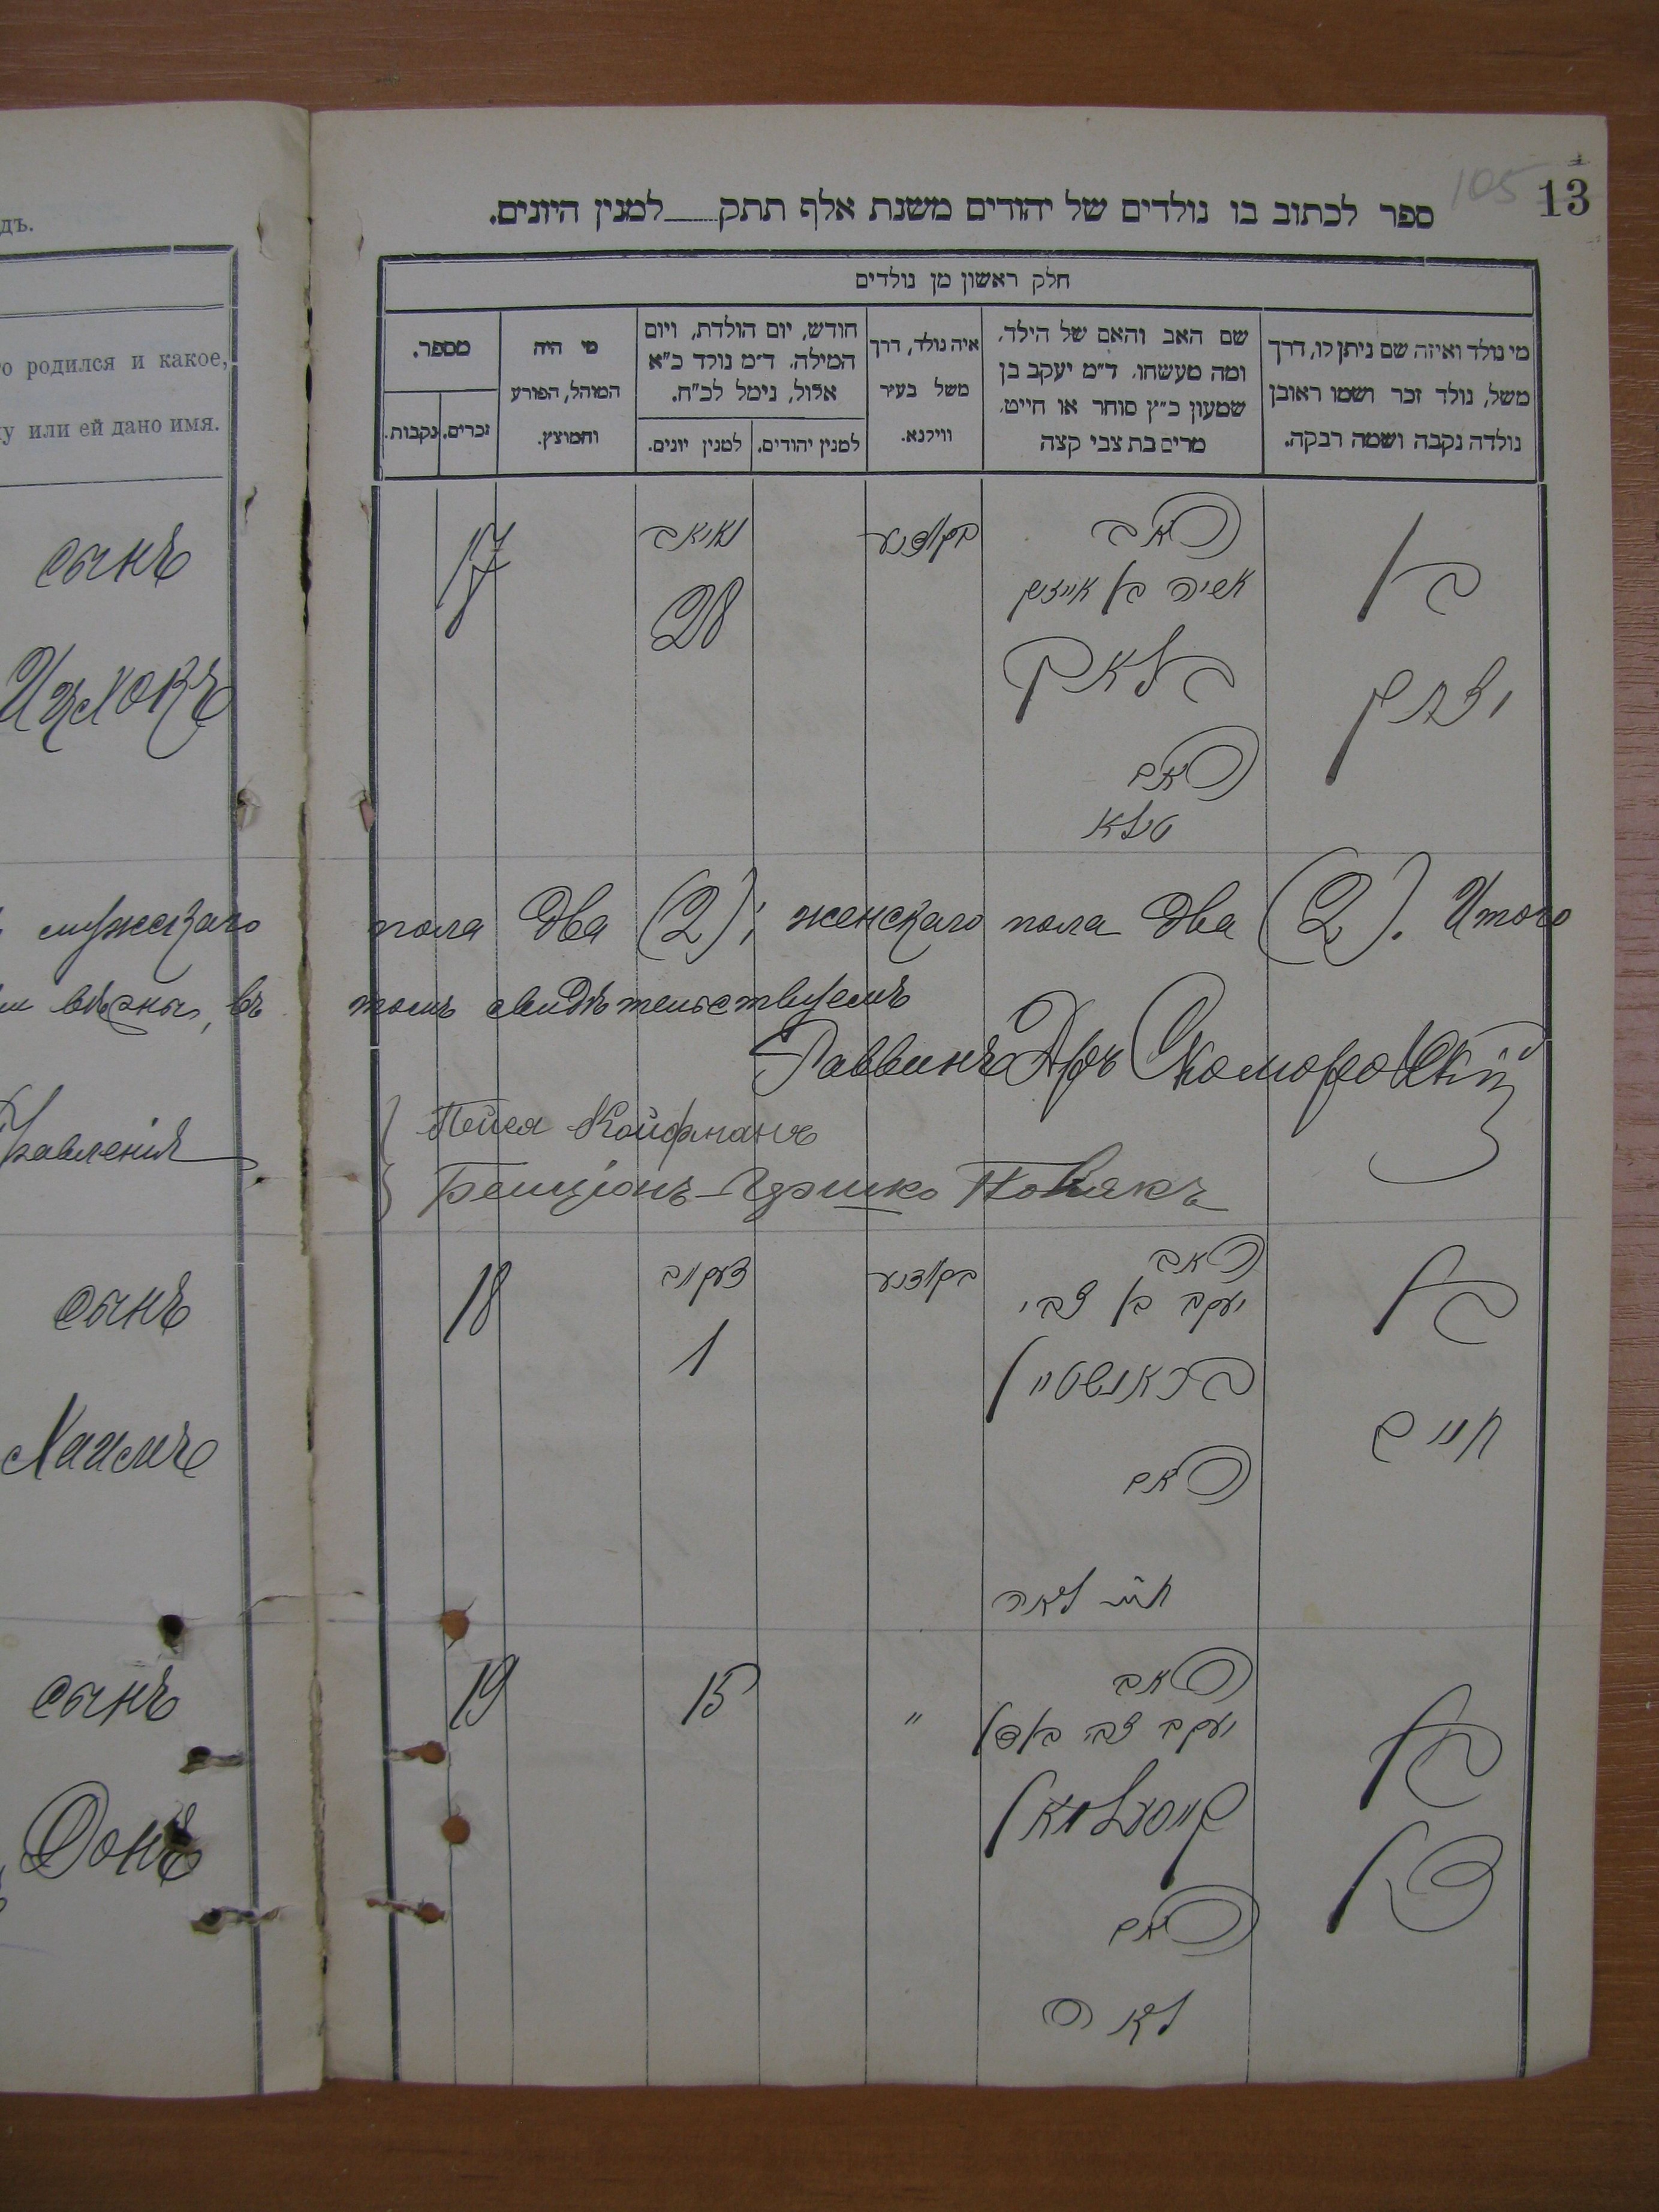 13
105
ספר לכתוב בו נולדים של יהודים משנת אלף תתק___למנין היונים.
חלק ראשון מן נולדים
מי נולד ואיזה שם ניתן לו, דרך
משל, נולד זכר ושמו ראובן
נולדה נקבה ושמה רבקה.
שם האב והאם של הילד,
ומה מעשהו. ד״מ יעקב בן
שמעון כ״ץ סוחר או חייט,
מרים בת צבי קצה
איה נולד, דרך
משל בעיר
ווילנא.
חודש, יום הולדת, ויום
המילה. ד״מ נולד כ״א
אלול, נימל לכ״ח.
למנין יהודים.
למנין יונים.
מי היה
המוהל, הפורע
והמוצץ.
מספר.
זכרים.
נקבות.
дъ.
о родился и какое,
у или ей дано имя.
сынъ
Ицхокъ
בן
יצחק
האב
אשיה בן אייזיק
בלאק
האם
טילא
28
17
мужскаго пола два (2); женскаго пола два (2). Итого
вѣрны, въ томъ свидѣтельствуемъ
Раввинъ Д-ръ Скоморовскій
Пейся Койфманъ
правленія
Бенціонъ-Гершко Новакъ
сынъ
Хаимъ
בן
חיים
האב
יעקב בן צבי
בראנשטיין
האם
חנה לאה
1
18
сынъ
Донъ
בן
דן
האב
יעקב צבי בן דן
האם
לאה
"
15
19